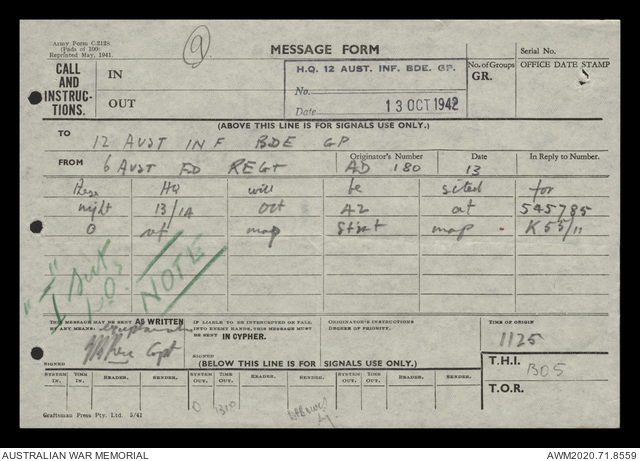 Army Form C.2128
(Pads of 100)
Reprinted May, 1941.
9
MESSAGE FORM
Serial No.
CALL
AND
INSTRUC-
TIONS.
IN
OUT
H.Q. 12 AUST. INF. BDE. GP.
No.
Date 13 OCT 1942
No. of Groups
GR.
OFFICE DATE STAMP
(ABOVE THIS LINE IS FOR SIGNALS USE ONLY.)
TO 12 AUST INF BDE GP
FROM 6 AUST FD REGT
Originator's Number AD 180
Date 13
In Reply to Number.
HQ will be sited for
night 13/14 Oct A2 at 545785
O ref map Strat map . K55/11
"I" Sect
NOTE
THIS MESSAGE MAY BE SENT AS WRITTEN
BY ANY MEANS.
IF LIABLE TO BE INTERCEPTED OR FALL
INTO ENEMY HANDS, THIS MESSAGE MUST
BE SENT IN CIPHER.
ORIGINATOR'S INSTRUCTIONS
DEGREE OF PRIORITY.
TIME OF ORIGIN
1125
Capt
SIGNED
SIGNED
(BELOW THIS LINE IS FOR SIGNALS USE ONLY.)
T.H.I. 1305
T.O.R.
SYSTEM IN. TIME IN. READER. SENDER. SYSTEM OUT. TIME OUT. READER. SENDER. SYSTEM OUT. TIME OUT. READER. SENDER.
1310
Craftsman Press Pty. Ltd. 5/41
AUSTRALIAN WAR MEMORIAL
AWM2020.71.8559